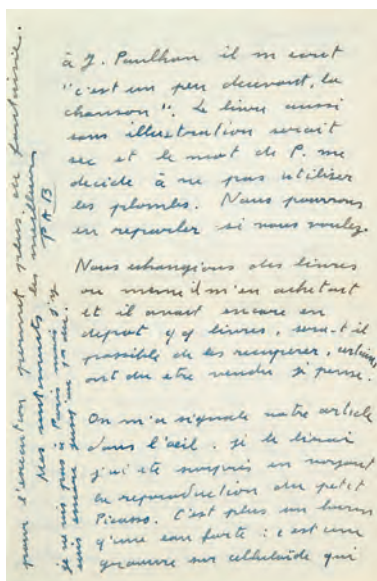 à J. Paulhan il m ecrit
"c'est un peu decevant, la
chanson". Le livre aussi
sans illustration serait
sec et le mot de P. me
decide à ne pas utiliser
les plombs. Nous pourrons
en reparler si vous voulez
Nous echangions des livres
ou meme il m'en achetait
et il avait encore en
depot qq livres, sera-t-il
possible de les recuperer, certains
ont du etre vendu je pense.
On m'a signale votre article
dans l'oeil, je le lirai
j'ai ete surpris en voyant
la reproduction du petit
Picasso. C'est plus un burin
q'une eau forte : c'est une
gravure sur celluloïde qui
pour l'execution permet plus de fantaisie.
Mes sentiments les meilleurs
PAB
je ne vis pas à Paris mais j'y
suis encore jusqu'au